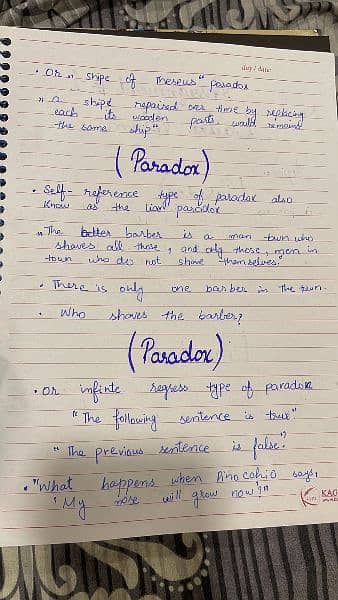 day / date:
• Or " shipe of Theseus" paradox
"a shipe repaired over time by replacing
each its wooden parts would remains
the same ship"
(Paradox)
• Self- reference type of paradox also
Know as the liar paradox
"The barber is a man town who
shaves all those, and only those, men in
town who do not shive themselves."
• There is only one barber in the town.
• Who shaves the barber?
(Paradox)
• Or infinte regress type of paradox
"The following sentence is true"
"The previous sentence is false."
• "What happens when Pinocohio says,
'My nose will grow now'?"